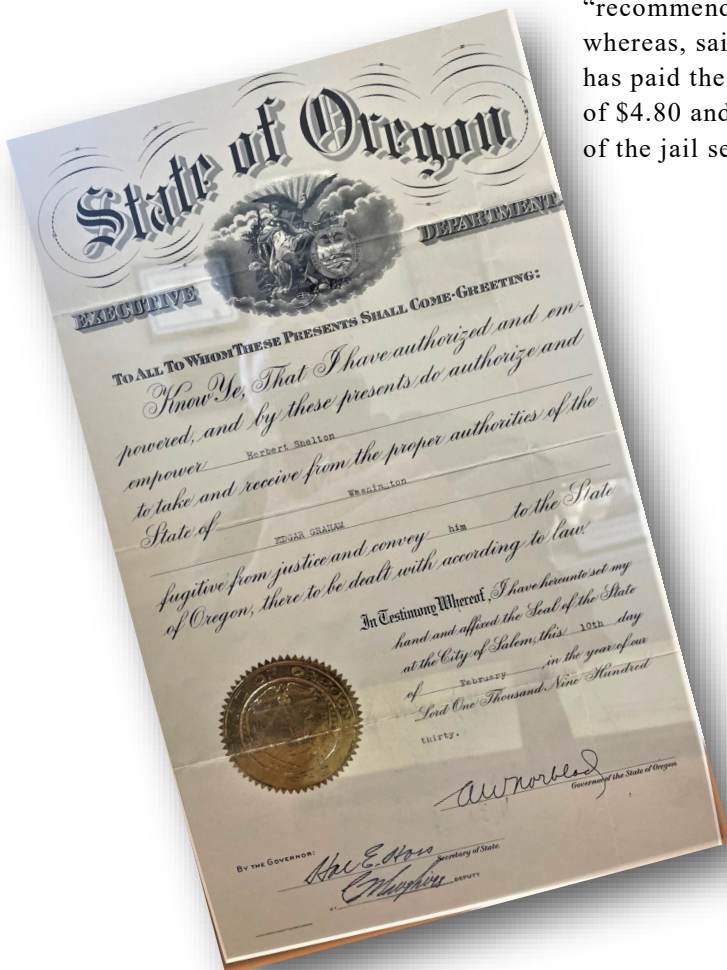 “recommend
whereas, sai
has paid the
of $4.80 and
of the jail se
State of Oregon
EXECUTIVE DEPARTMENT
TO ALL TO WHOM THESE PRESENTS SHALL COME-GREETING:
Know Ye, That I have authorized and em-
powered, and by these presents do authorize and
empower Herbert Shelton
to take and receive from the proper authorities of the
State of Washington
EDGAR GRAHAM
fugitive from justice and convey him to the State
of Oregon, there to be dealt with according to law.
In Testimony Whereof, I have hereunto set my
hand and affixed the Seal of the State
at the City of Salem, this 10th day
of February, in the year of our
Lord One Thousand Nine Hundred
thirty.
AW Norblad
Governor of the State of Oregon.
BY THE GOVERNOR:
Hal E. Hoss
Secretary of State.
DEPUTY